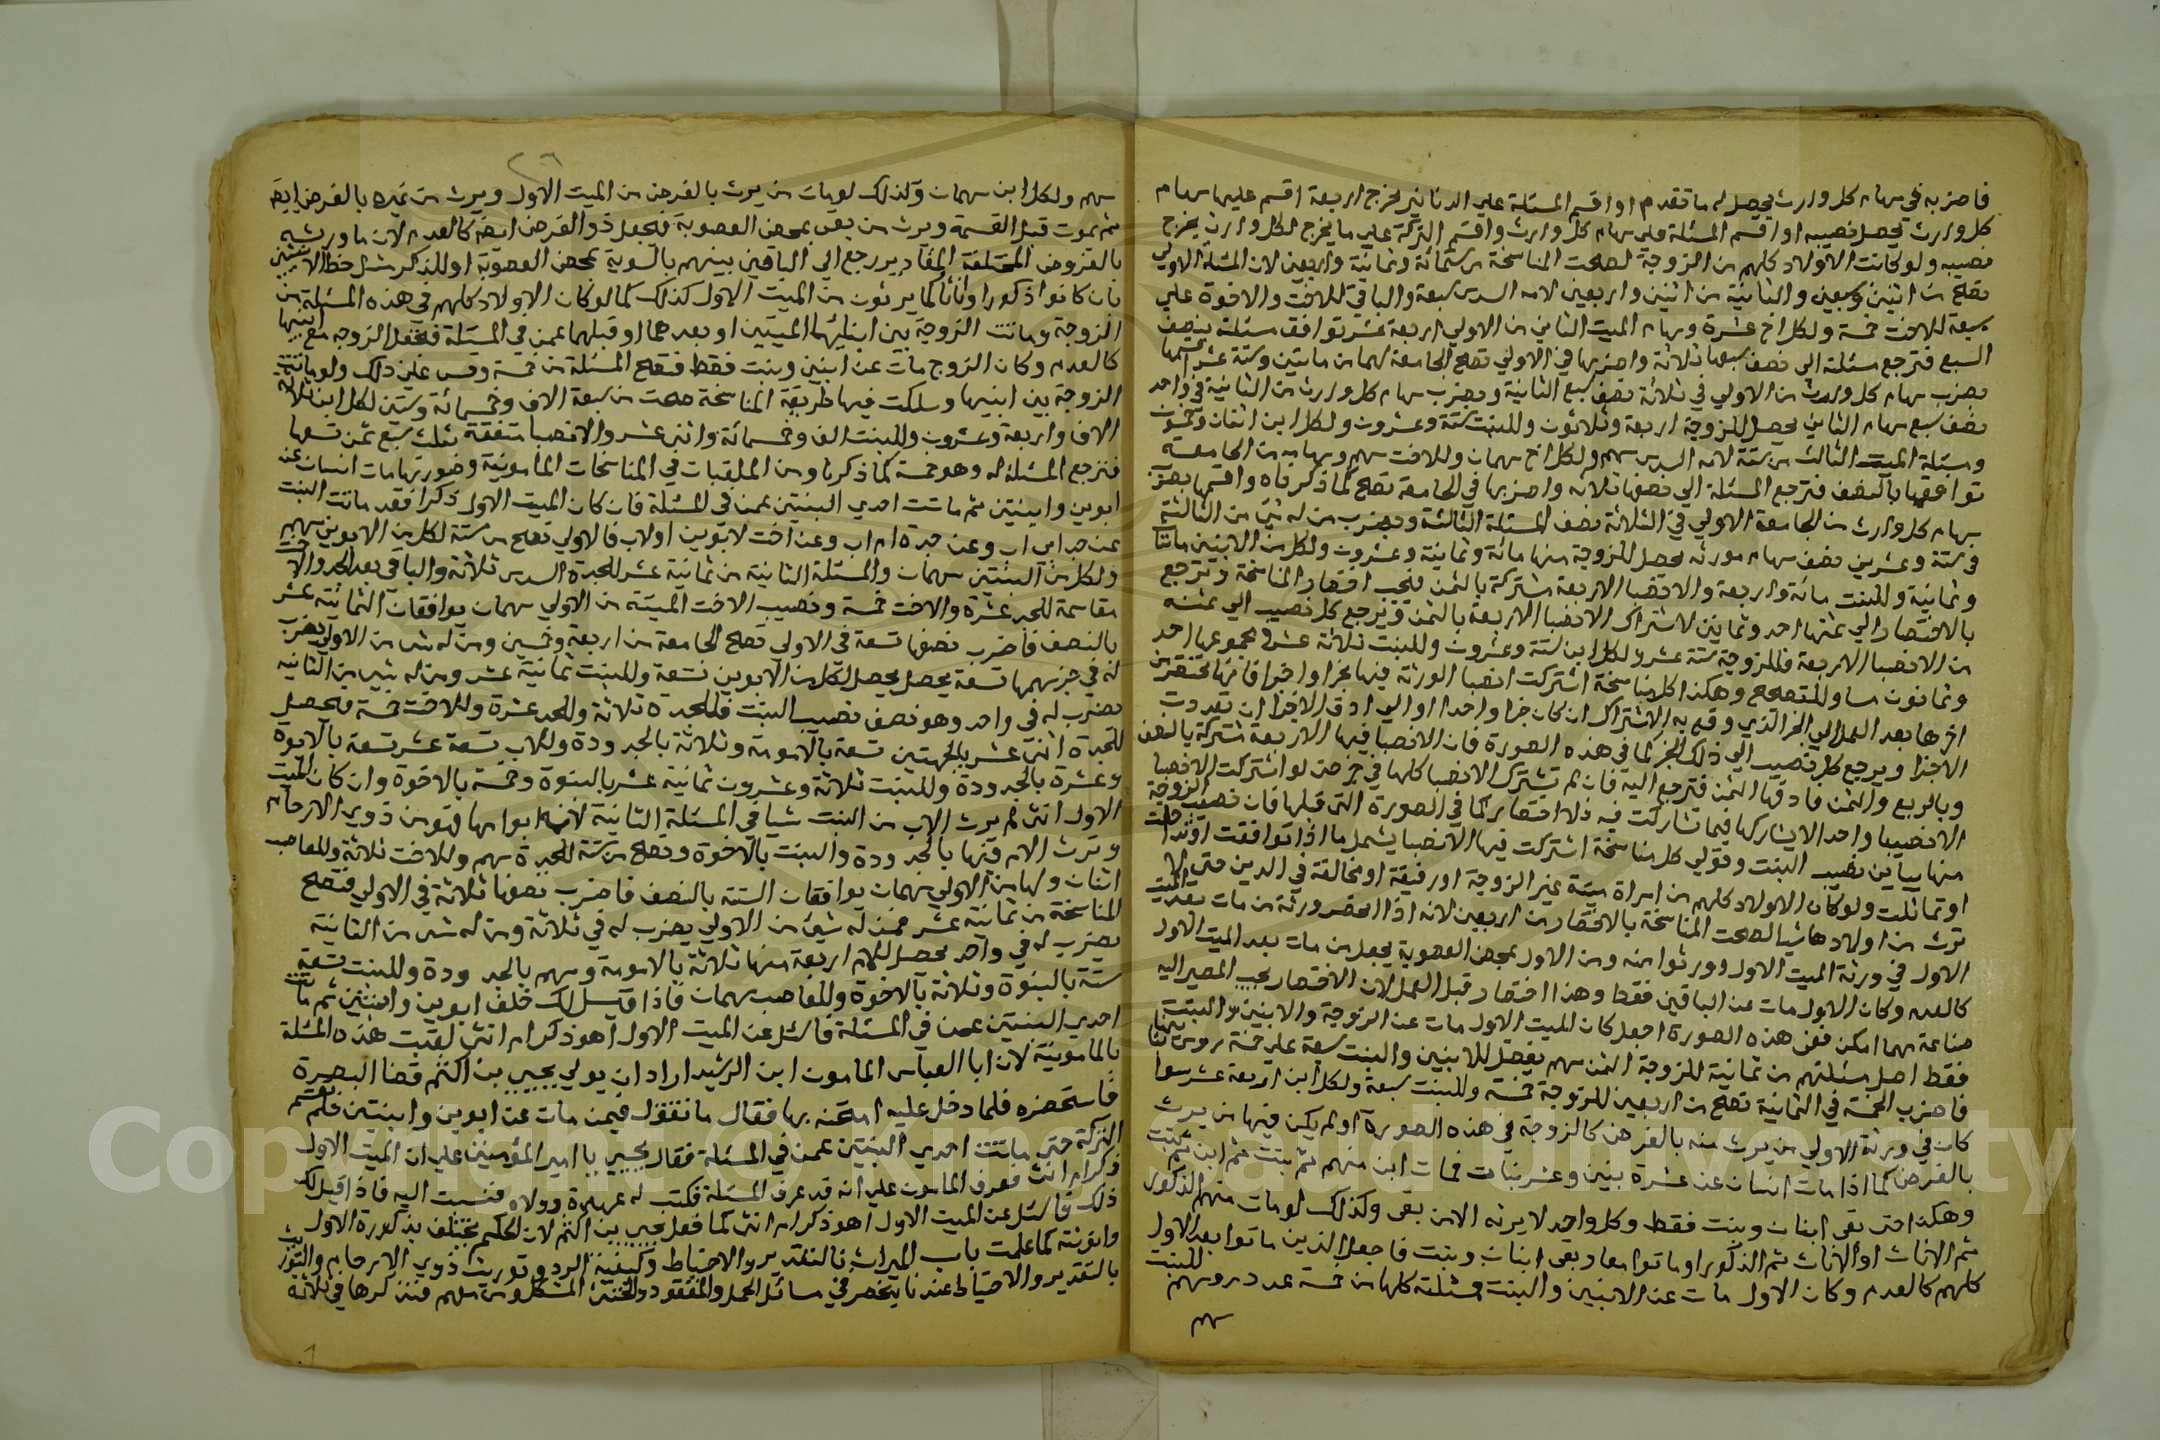 فاضربه في سهام كل وارث يحصل له ما تقدم او اقسم المسئلة علي الدنانير يخرج اربعة اقسم عليها سهام
كل وارث يحصل نصيبه او اقسم المسئلة علي سهام كل وارث واقسم التركة علي ما يخرج لكل وارث يخرج
نصيبه ولو كانت الاولاد كلهم من الزوجة لصحت المناسخة من ستمائة وثمانية واربعين لان المسئلة الاولي
تصح من اثنين وسبعين والثانية من اثنين واربعين للام السدس سبعة والباقي للاخت والاخوة علي
سبعة للاخت خمسة ولكل اخ عشرة وسهام الميت الثاني من الاولي اربعة عشر توافق مسئلته بنصف
السبع فترجع مسئلته الي نصف سبعها ثلاثة واضربها في الاولي تصح الجامعة لهما من مائتين وستة عشر اقسمها
بضرب سهام كل وارث من الاولي في ثلاثة نصف سبع الثانية وبضرب سهام كل وارث من الثانية في واحد
نصف سبع سهام الثاني يحصل للزوجة اربعة وثلاثون وللبنت ستة وعشرون ولكل ابن اثنان وخمسون
ومسئلة الميت الثالث من ستة للام السدس سهم ولكل اخ سهمان وللاخت سهم وسهامه من الجامعة
توافقها بالنصف فترجع المسئلة الي نصفها ثلاثة واضربها في الجامعة تصح كما ذكرناه واقسمها بضرب
سهام كل وارث من الجامعة الاولي في الثلاثة نصف المسئلة الثالثة وبضرب من له شئ من الثالثة
في ستة وعشرين نصف سهام مورثه يحصل للزوجة منها مائة وثمانية وعشرون ولكل من الابنين مائتا
وثمانية وللبنت مائة واربعة والانصبا الاربعة مشتركة بالثمن فيجب اختصار المناسخة وترجع
بالاختصار الي ثمنها احد وثمانين لاشتراك الانصبا الاربعة بالثمن وترجع كل نصيب الي ثمنه
من الانصبا الاربعة فللزوجة ستة عشر ولكل ابن ستة وعشرون وللبنت ثلاثة عشر ومجموعها احد
وثمانون مساو للمتصحح وهكذا كل مناسخة اشتركت انصبا الورثة فيها بجزا واجزا فانها تختصر من
اخرها بعد العمل الي الجز الذي وقع به الاشتراك ان كان جزا واحدا او الي ادق الاجزا ان تعددت
الاجزا ويرجع كل نصيب الي ذلك الجز كما في هذه الصورة فان الانصبا فيها الاربعة مشتركة بالنصف
وبالربع وبالثمن فادقها الثمن فترجع اليه فان لم تشترك الانصبا كلها في جز حتي لو اشتركت الانصبا
الا نصيبا واحدا لا يشاركها فيما تشاركت فيه فلا اختصار كما في الصورة التي قبلها فان نصيب الزوجة
منها يباين نصيب البنت وقولي كل مناسخة اشتركت فيها الانصبا يشمل ما اذا توافقت او تداخلت
او تماثلت ولو كان الاولاد كلهم من امراة ميتة غير الزوجة او رقيقة او مخالفة في الدين حتي لا
ترث من اولادها شيا لصحت المناسخة بالاختصار من اربعين لانه اذا انحصر ورثة من مات بعد الميت
الاول في ورثة الميت الاول وورثوا منه ومن الاول بمحض العصوبة يجعل من مات بعد الميت الاول
كالعدم وكان الاول مات عن الباقين فقط وهذا اختصار قبل العمل لان الاختصار يجب المصير اليه
صناعة مهما امكن ففي هذه الصورة اجعل كان الميت الاول مات عن الزوجة والابنين والبنت
فقط اصل مسئلتهم من ثمانية للزوجة الثمن سهم يفضل للابنين والبنت سبعة علي خمسة روس تباينها
فاضرب الخمسة في الثمانية تصح من اربعين للزوجة خمسة وللبنت سبعة ولكل ابن اربعة عشر سوا
كان في ورثة الاولي من يرث منه بالفرض كالزوجة في هذه الصورة او لم يكن فيها من يرث
بالفرض كما اذا مات انسان عن عشرة بنين وعشر بنات فمات ابن منهم ثم بنت ثم ابن ثم بنت
وهكذا حتي بقي ابنان وبنت فقط وكل واحد لا يرثه الا من بقي وكذلك لو مات منهم الذكور
ثم الاناث او الاناث ثم الذكور او ماتوا معا وبقي ابنان وبنت فاجعل الذين ماتوا بعد الاول
كلهم كالعدم وكان الاول مات عن الابنين والبنت فمسئلته كلها من خمسة عدد روسهم للبنت
سهم
سهم ولكل ابن سهمان وكذلك لو مات من يرث بالفرض من الميت الاول ويرث من غيره بالفرض ايضا
ثم يموت قبل القسمة ويرث من بقي بمحض العصوبة فيجعل ذو الفرض ايضا كالعدم لان ما ورثه
بالفروض المختلفة المقادير رجع الي الباقين بينهم بالسوية بمحض العصوبة او للذكر مثل حظ الانثيين
بان كانوا ذكورا واناثا كما يرثون من الميت الاول كذلك كما لو كان الاولاد كلهم في هذه المسئلة من
الزوجة وماتت الزوجة بين ابنيها الميتين او بعدهما او قبلهما عمن في المسئلة فتجعل الزوجة مع ابنيها
كالعدم وكان الزوج مات عن ابنين وبنت فقط فتصح المسئلة من خمسة وقس علي ذلك ولو ماتت
الزوجة بين ابنيها وسلكت فيها طريقة المناسخة صحت من سبعة الاف وخمسمائة وستين لكل ابن ثلاثة
الاف واربعة وعشرون وللبنت الف وخمسمائة واثنا عشر والانصبا متفقة بثلث سبع ثمن تسعها
فترجع المسئلة له وهو خمسة كما ذكرنا ومن الملقبات في المناسخات المأمونية وصورتها مات انسان عن
ابوين وابنتين ثم ماتت احدي البنتين عمن في المسئلة فان كان الميت الاول ذكرا فقد ماتت البنت
عن جد ابي اب وعن جدة ام اب وعن اخت لابوين او لاب فالاولي تصح من ستة لكل من الابوين سهم
ولكل من البنتين سهمان والمسئلة الثانية من ثمانية عشر للجدة السدس ثلاثة والباقي بعد الجد والاخت
مقاسمة للجد عشرة والاخت خمسة ونصيب الاخت الميتة من الاولي سهمان يوافقان الثمانية عشر
بالنصف فاضرب نصفها تسعة في الاولي تصح الجامعة من اربعة وخمسين ومن له شئ من الاولي يضرب
له في جز سهمها تسعة يحصل لكل من الابوين تسعة وللبنت ثمانية عشر ومن له شئ من الثانية
يضرب له في واحد وهو نصف نصيب البنت فللجدة ثلاثة وللجد عشرة وللاخت خمسة فيحصل
للجدة اثني عشر بالجهتين تسعة بالامومة وثلاثة بالجدودة وللاب تسعة عشر تسعة بالابوة
وعشرة بالجدودة وللبنت ثلاثة وعشرون ثمانية عشر بالبنوة وخمسة بالاخوة وان كان الميت
الاول انثي لم يرث الاب من البنت شيا في المسئلة الثانية لانه ابو امها فهو من ذوي الارحام
وترث الام فيها بالجدودة والبنت بالاخوة وتصح من ستة للجدة سهم وللاخت ثلاثة وللعاصب
اثنان ولها من الاولي سهمان يوافقان الستة بالنصف فاضرب نصفها ثلاثة في الاولي فتصح
المناسخة من ثمانية عشر فمن له شئ من الاولي يضرب له في ثلاثة ومن له شئ من الثانية
يضرب له في واحد يحصل للام اربعة منها ثلاثة بالامومة وسهم بالجدودة وللبنت تسعة
ستة بالبنوة وثلاثة بالاخوة وللعاصب سهمان فاذا قيل لك خلف ابوين وابنتين ثم ماتت
احدي البنتين عمن في المسئلة فاسئل عن الميت الاول اهو ذكر ام انثي لقبت هذه المسئلة
بالمامونية لان ابا العباس المامون ابن الرشيد اراد ان يولي يحيي بن اكثم قضا البصرة
فاستحضره فلما دخل عليه امتحنه بها فقال ما تقول فيمن مات عن ابوين وابنتين فلم تقسم
التركة حتي ماتت احدي البنتين عمن في المسئلة فقال يحيي يا امير المؤمنين علي ان الميت الاول
ذكر ام انثي فعرف المامون علي انه قد عرف المسئلة فكتب له عهده وولاه فنسبت اليه فاذا قيل لك
ذلك فاسئل عن الميت الاول اهو ذكر ام انثي كما فعل يحيي بن اكثم لان الحكم يختلف بذكورة الاول
وانوثته كما علمت باب الميراث بالتقدير والاحتياط وكيفية الرد وتوريث ذوي الارحام والتوريث
بالتقدير والاحتياط عندنا ينحصر في مسائل الحمل والمفقود والخنثي المشكل ومن معهم فنذكرها في ثلاثة